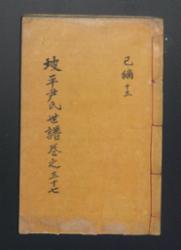 己編 十三
坡平尹氏世譜卷之三十七